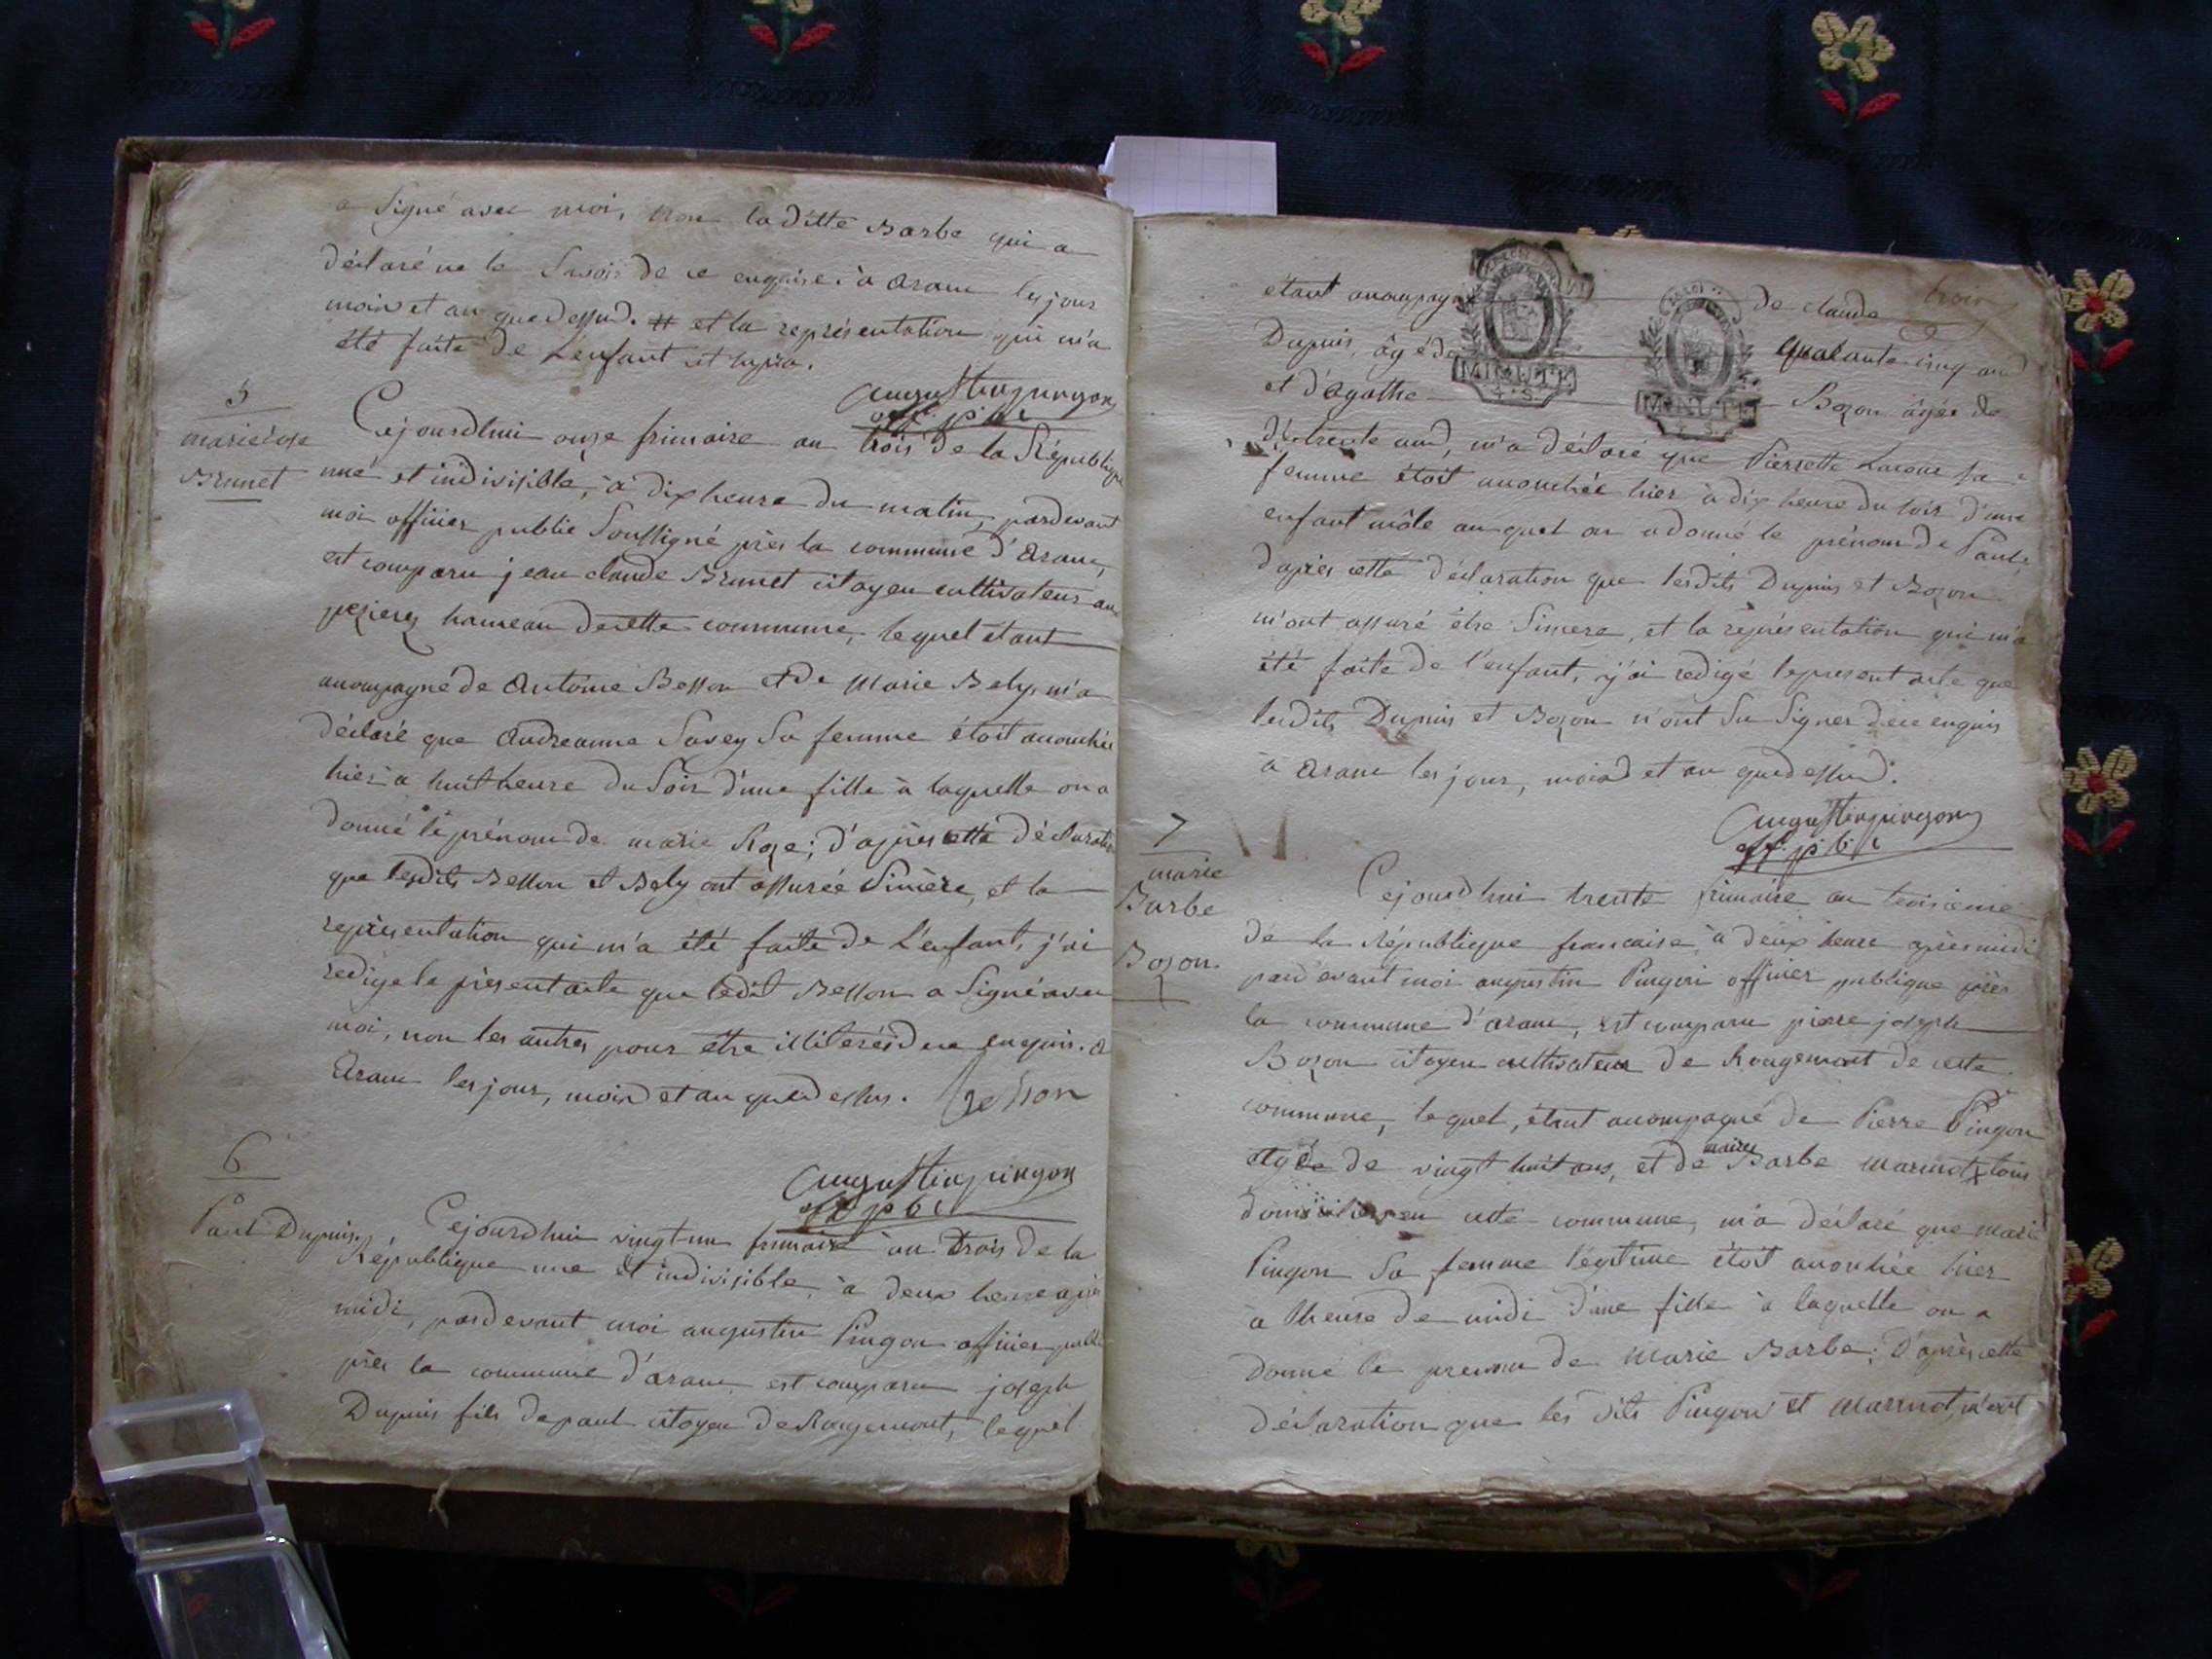 a signé avec moi, non laditte Barbe qui a
déclaré ne le savoir de ce enquise. à aranc les jour
mois et an que dessud. # et la représentation qui m'a
été faite de l'enfant et
augustin pingon
off. pbc
5
marie rose
Brunet
Cejourdhui onze frimaire an trois de la République
une et indivisible, à dix heure du matin, pardevant
moi officier public soussigné près la commune d'aranc,
est comparu jean claude Brunet citoyen cultivateur aux
pezieres hameau de cette commune, lequel étant
acompagné de antoine Besson et de marie Bely, m'a
déclaré que andreanne Savey sa femme étoit acouchée
hier à huit heure du soir d'une fille à laquelle on a
donné le prénom de marie Roze; d'après cette déclaration
que lesdits Besson et Bely ont assurée sincère, et la
représentation qui m'a été faite de l'enfant, j'ai
redigé le présent acte que ledit Besson a signé avec
moi, non les autres pour être illiterés de ce enquis. a
aranc les jour, mois et an que dessus. Besson
augustin pingon
off pbc
6
Paul Dupuis
Cejourdhui vingt un frimaire an trois de la
République une et indivisible, à deux heure après
midi, pardevant moi augustin Pingon officier public
près la commune d'aranc, est comparu joseph
Dupuis fils de paul citoyen de Rougemont, lequel
trois
étant acompagné de claude
Dupuis, âgé de quarante cinq and
et d'agathe Bozon âgée de
trente and, m'a déclaré que Pierrette sa
femme étoit acouchée hier à dix heure du soir d'une
enfant mâle auquel on a donné le prénom de Paul,
d'après cette déclaration que lesdits Dupuis et Bozon
m'ont assuré être sincere, et la représentation qui m'a
été faite de l'enfant, j'ai redigé le present acte que
lesdits Dupuis et Bozon n'ont su signer de ce enquis
à aranc les jour, moisd et an que dessud.
MINUTE
4. S.
MINUTE
4. S.
augustin pingon
off. pbc
7
marie
Barbe
Bozon
Cejourdhui trente frimaire an troisieme
de la République francaise à deux heure après midi
pardevant moi augustin Pingon officier publique près
la commune d'aranc, est comparu piere joseph
Bozon citoyen cultivateur de Rougemont de cette
commune, lequel, étant acompagné de Pierre Pingon
agé de vingt huit ans, et de marie Barbe marinot tous
domiciliers en cette commune, m'a déclaré que marie
Pingon sa femme légitime étoit acouchée hier
à l'heure de midi d'une fille à laquelle on a
donné le prenom de marie Barbe; D'après cette
déclaration que les dits Pingon et marinot, m'ont